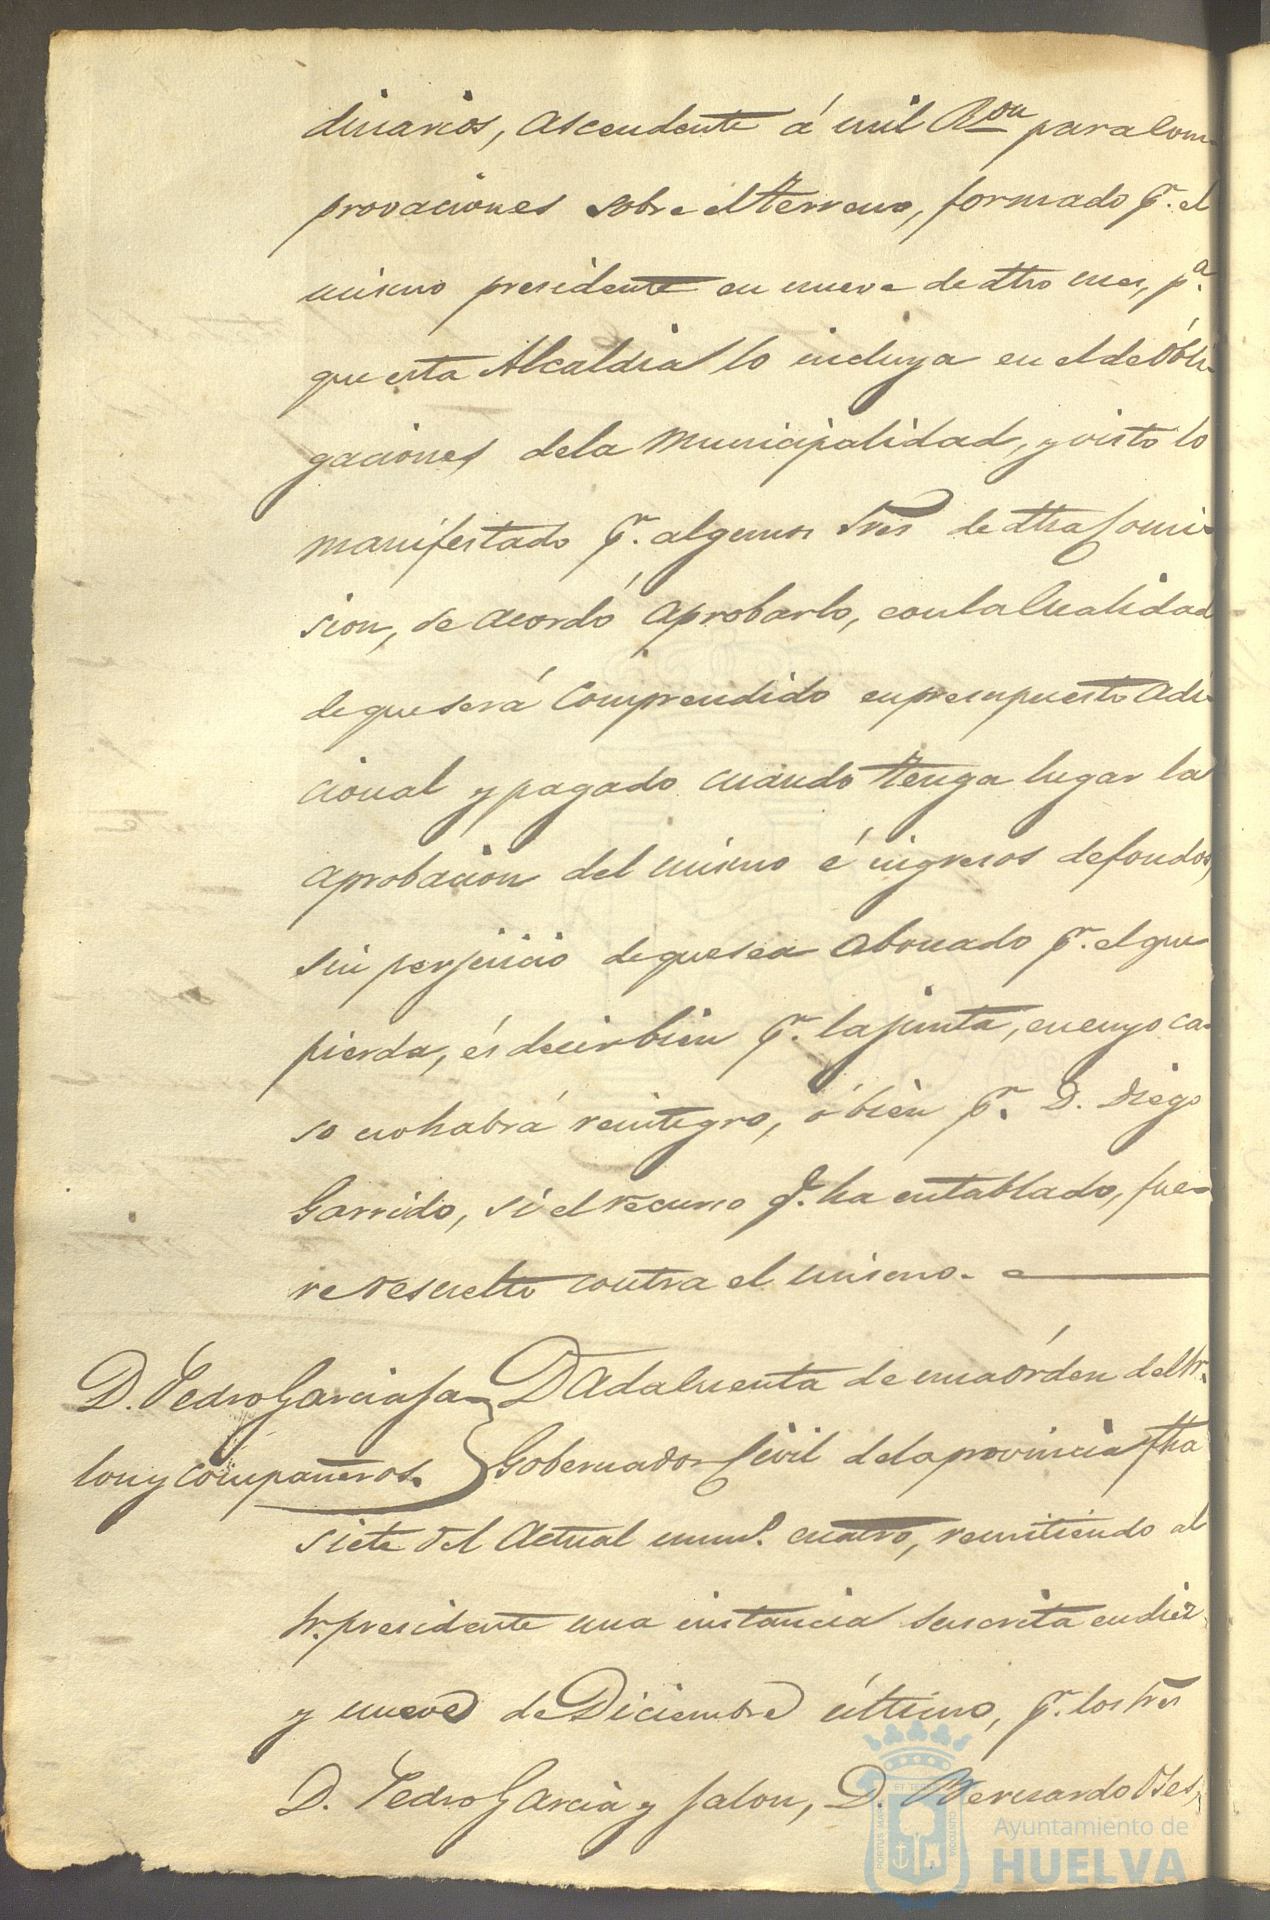 dinarios, ascendente á mil Ron para com-
provaciones sobre el terreno, formado pr. el
mismo presidente en nueve de dho mes, pa.
que esta Alcaldia lo incluya en el de obli-
gaciones dela Municipalidad, y visto lo
manifestado pr. algunos Sres de dha Comi-
sion, se acordó aprobarlo, con la Cualidad
de que será Comprendido en presupuesto adi-
cional y pagado cuando tenga lugar la
aprobacion del mismo é ingresos de fondos,
sin perjuicio de que sea abonado pr. el que
pierda, és decir bien pr. la junta, en cuyo ca-
so no habrá reintegro, ó bien pr. D. Diego
Garrido, si el recurso q. ha entablado, fue-
re resuelto contra el mismo.
D. Pedro Garcia Ja-
lon y compañeros.
Dada Cuenta de una órden del Sr.
Gobernador Civil dela provincia fha
siete del actual numo. cuatro, remitiendo al
Sr. presidente una instancia suscrita en diez
y nueve de Diciembre último, pr. los Sres
D. Pedro Garcia y Jalon, D. Bernardo
Ayuntamiento de
HUELVA